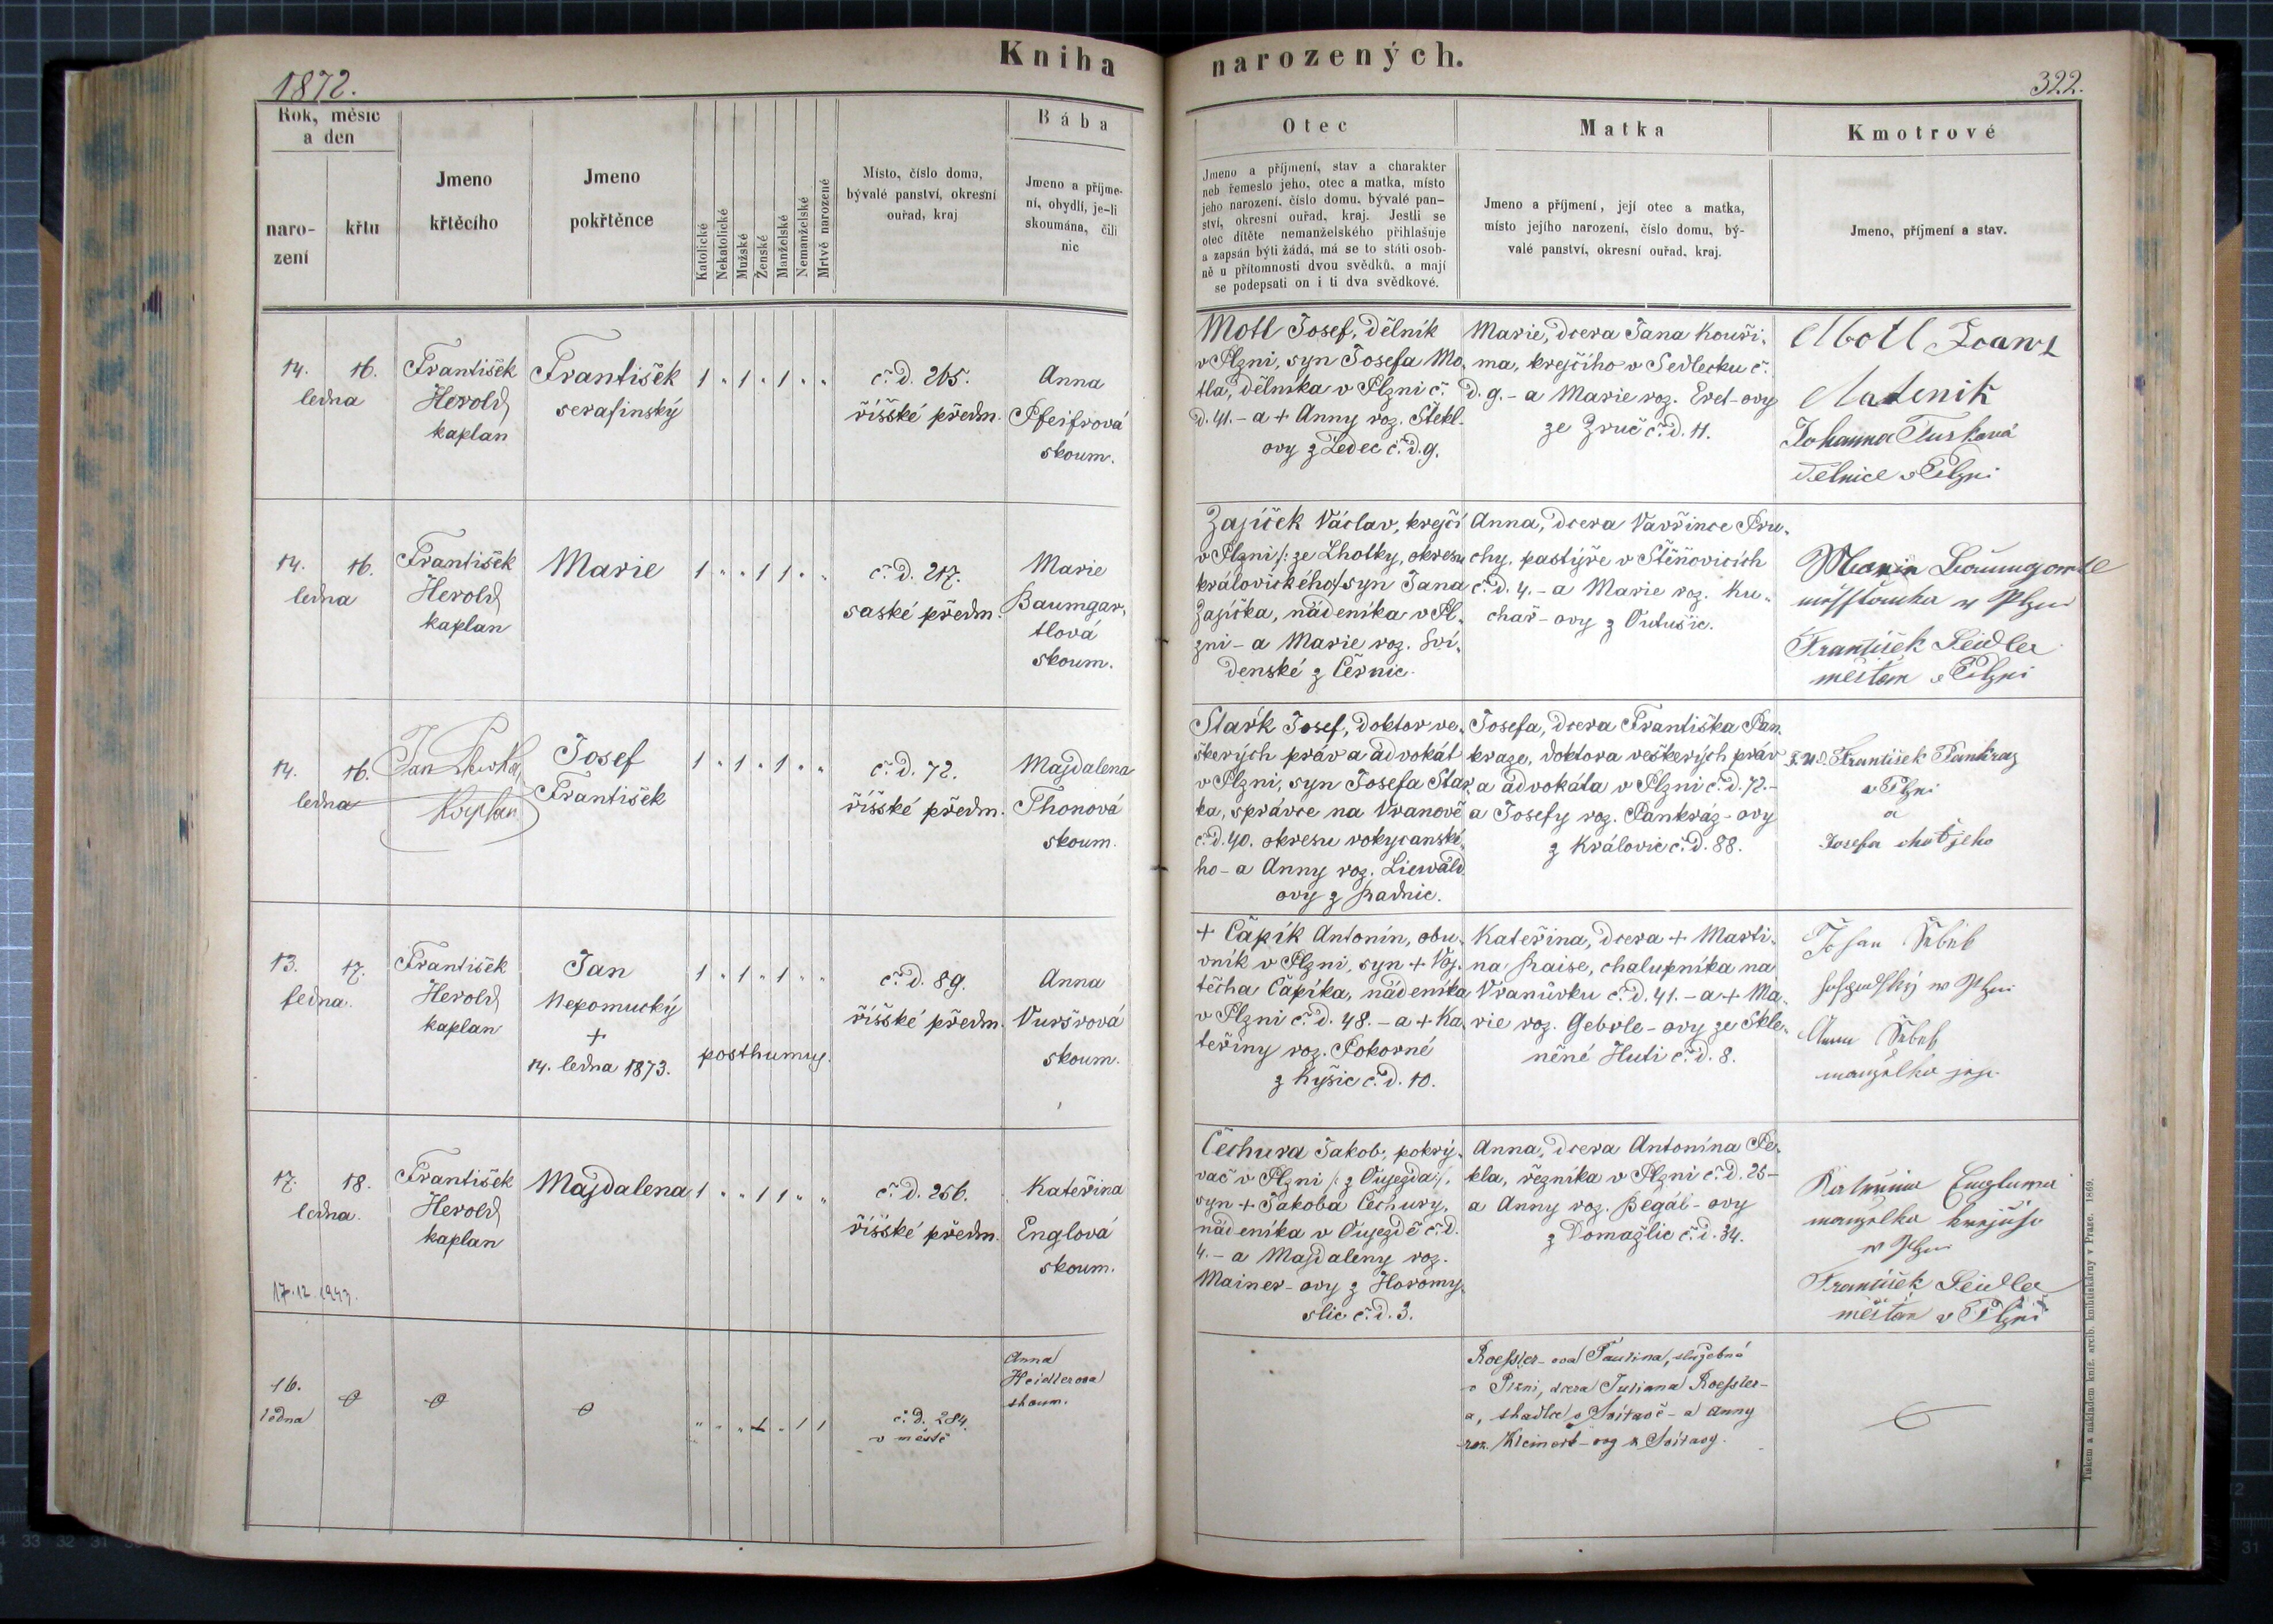 Kniha narozených.
1872.
322.
Rok, měsíc a den
narození
křtu
Jmeno křtěcího
Jmeno pokřtěnce
Katolické
Nekatolické
Mužské
Ženské
Manželské
Nemanželské
Mrtvě narozené
Místo, číslo domu,
bývalé panství, okresní
ouřad, kraj
Bába
Jmeno a příjme-
ní, obydlí, je-li
skoumána, čili
nic
Otec
Jmeno a příjmení, stav a charakter
neb řemeslo jeho, otec a matka, místo
jeho narození, číslo domu, bývalé pan-
ství, okresní ouřad, kraj. Jestli se
otec dítěte nemanželského přihlašuje
a zapsán býti žádá, má se to státi osob-
ně u přítomnosti dvou svědků, a mají
se podepsati on i ti dva svědkové.
Matka
Jmeno a příjmení, její otec a matka,
místo jejího narození, číslo domu, bý-
valé panství, okresní ouřad, kraj.
Kmotrové
Jmeno, příjmení a stav.
14. 16.
ledna
František
Herold
kaplan
František
serafinský
1 " 1 " 1 " "
č. d. 265.
říšské předm.
Anna
Pfeifrová
skoum.
Motl Josef, dělník
v Plzni, syn Josefa Mo-
tla, dělníka v Plzni č.
d. 41. - a + Anny roz. Štekl-
ovy z Ledec č. d. 9.
Marie, dcera Jana Kouři-
ma, krejčího v Sedlecku č.
d. 9. - a Marie roz. Eret-ovy
ze Zruč č. d. 11.
Motl Franz
Johanna Turková
dělnice v Plzni
14. 16.
ledna
František
Herold
kaplan
Marie
1 " " 1 1 " "
č. d. 217.
saské předm.
Marie
Baumgar-
tlová
skoum.
Zajíček Václav, krejčí
v Plzni /: ze Lhotky, okresu
královického/ syn Jana
Zajíčka, nádeníka v Pl-
zni - a Marie roz. Sví-
denské z Černic.
Anna, dcera Vavřince Pru-
chy, pastýře v Štěňovicích
č. d. 4. - a Marie roz. Ku-
chař-ovy z Outušic.
František Seidler
měšťan v Plzni
14. 16.
ledna
Jan
kaplan
Josef
František
1 " 1 " 1 " "
č. d. 72.
říšské předm.
Majdalena
Thonová
skoum.
Stark Josef, doktor ve-
škerých práv a advokát
v Plzni, syn Josefa Star-
ka, správce na Vranově
č. d. 40. okresu rokycanské-
ho - a Anny roz. Liewald-
ovy z Radnic.
Josefa, dcera Františka Pan-
kraze, doktora veškerých práv
a advokáta v Plzni č. d. 72. -
a Josefy roz. Pankráz-ovy
z Královic č. d. 88.
J. U. D. František Pankraz
v Plzni
a
Josefa choť jeho
13. 17.
ledna.
František
Herold
kaplan
Jan
Nepomucký
+
14. ledna 1873.
1 " 1 " 1 " "
posthumus.
č. d. 89.
říšské předm.
Anna
Vuršrová
skoum.
+ Čapík Antonín, obu-
vník v Plzni, syn + Voj-
těcha Čapíka, nádeníka
v Plzni č. d. 48. - a + Ka-
teřiny roz. Pokorné
z Kyšic č. d. 10.
Kateřina, dcera + Marti-
na Raise, chalupníka na
Vranůvku č. d. 41. - a + Ma-
rie roz. Gebrle-ovy ze Skle-
něné Huti č. d. 8.
17. 18.
ledna.
17.12.1943.
František
Herold
kaplan
Majdalena
1 " " 1 1 " "
č. d. 256.
říšské předm.
Kateřina
Englová
skoum.
Čechura Jakob, pokrý-
vač v Plzni /: z Oujezda :/,
syn + Jakoba Čechury,
nádeníka v Oujezdě č. d.
4. - a Majdaleny roz.
Mainer-ovy z Horomy-
slic č. d. 3.
Anna, dcera Antonína Pe-
kla, řezníka v Plzni č. d. 25 -
a Anny roz. Regál-ovy
z Domažlic č. d. 34.
manželka krejčího
v Plzni
František Seidler
měšťan v Plzni
16.
ledna
" " " 1 " 1 1
č. d. 284.
v městě
Anna
Heidlerova
skoum.
Roessler-ova Paulina, služebná
v Plzni, dcera Juliana Roessler-
a, tkadlce v Svitavě - a Anny
roz. Kleinert-ovy z Svitavy.
Tiskem a nákladem kníž. arcib. knihtiskárny v Praze. 1869.